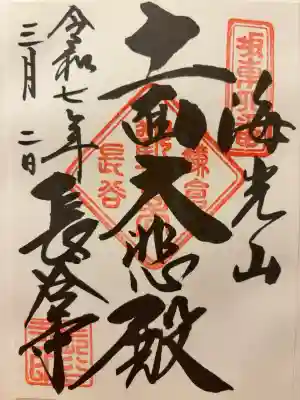 海光山
十一面大悲殿
長谷寺
令和七年
三月二日
坂東四番
鎌倉
長谷